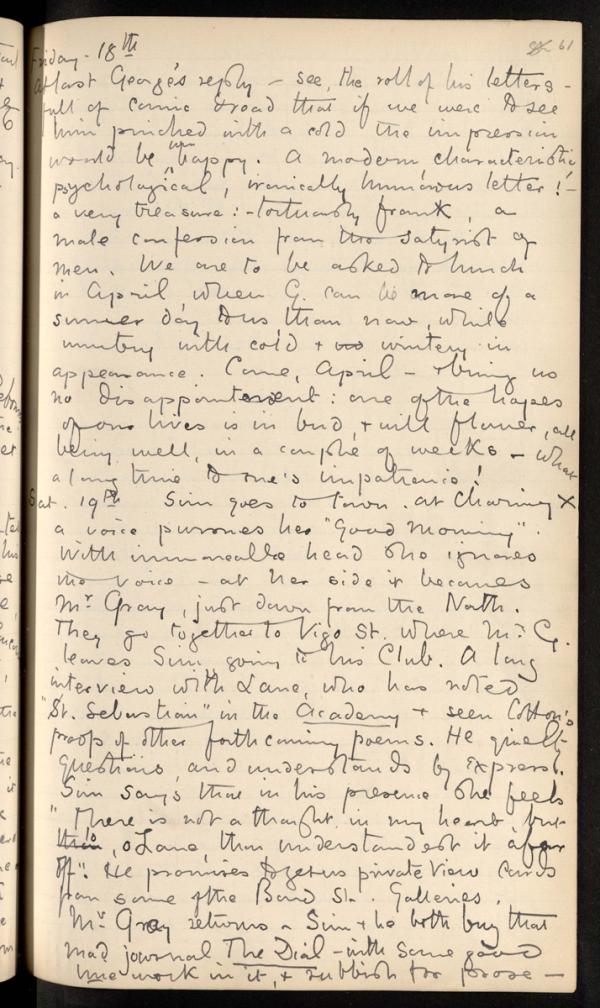 61
Friday. 18th
At last George's reply — see, the roll of his letters —
full of comic dread that if we were to see
him pinched with a cold the impression
would be unhappy. A modern characteristic
psychological, ironically humorous letter! —
a very treasure: - tortuously frank, a
male confession from the satyrist of
men. We are to be asked to lunch
in April, when G. can be more of a
summer day to us, than now, while
with cold + wintery in
appearance. Come, April — + bring us
no disappointment: one of the hopes
of our lives is in bud, + will flower, all
being well, in a couple of weeks — what
a long time to one's impatience!
Sat. 19th Sim goes to town. at Charing X
a voice pursues her "Good Morning".
With immoveable head she ignores
the voice — at her side it becomes
Mr Gray, just down from the North.
They go together to Vigo St. where Mr G.
leaves Sim, going to his Club. A long
interview with Lane, who has noted
"St. Sebastian" in the Academy + seen Cotton's
proofs of other forthcoming poems. He
questions, and understands by express.
Sim says that in his presence she feels
"There is not a thought in my heart, but
, o Lane, thou understandest it afar
off". He promises to get us private View cards
from some of the Bond St. Galleries.
Mr Gray returns — Sim + he both buy that
mad journal The Dial — with some good
line work in it, + rubbish for prose —